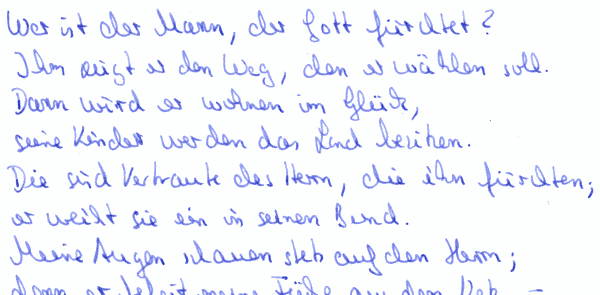 Wer ist der Mann, der Gott fürchtet?
Ihm zeigt er den Weg, den er wählen soll.
Dann wird er wohnen im Glück,
seine Kinder werden das Land besitzen.
Die sind Vertraute des Herrn, die ihn fürchten;
er weiht sie ein in seinen Bund.
Meine Augen schauen stets auf den Herrn;
denn er befreit meine Füße aus dem Netz –